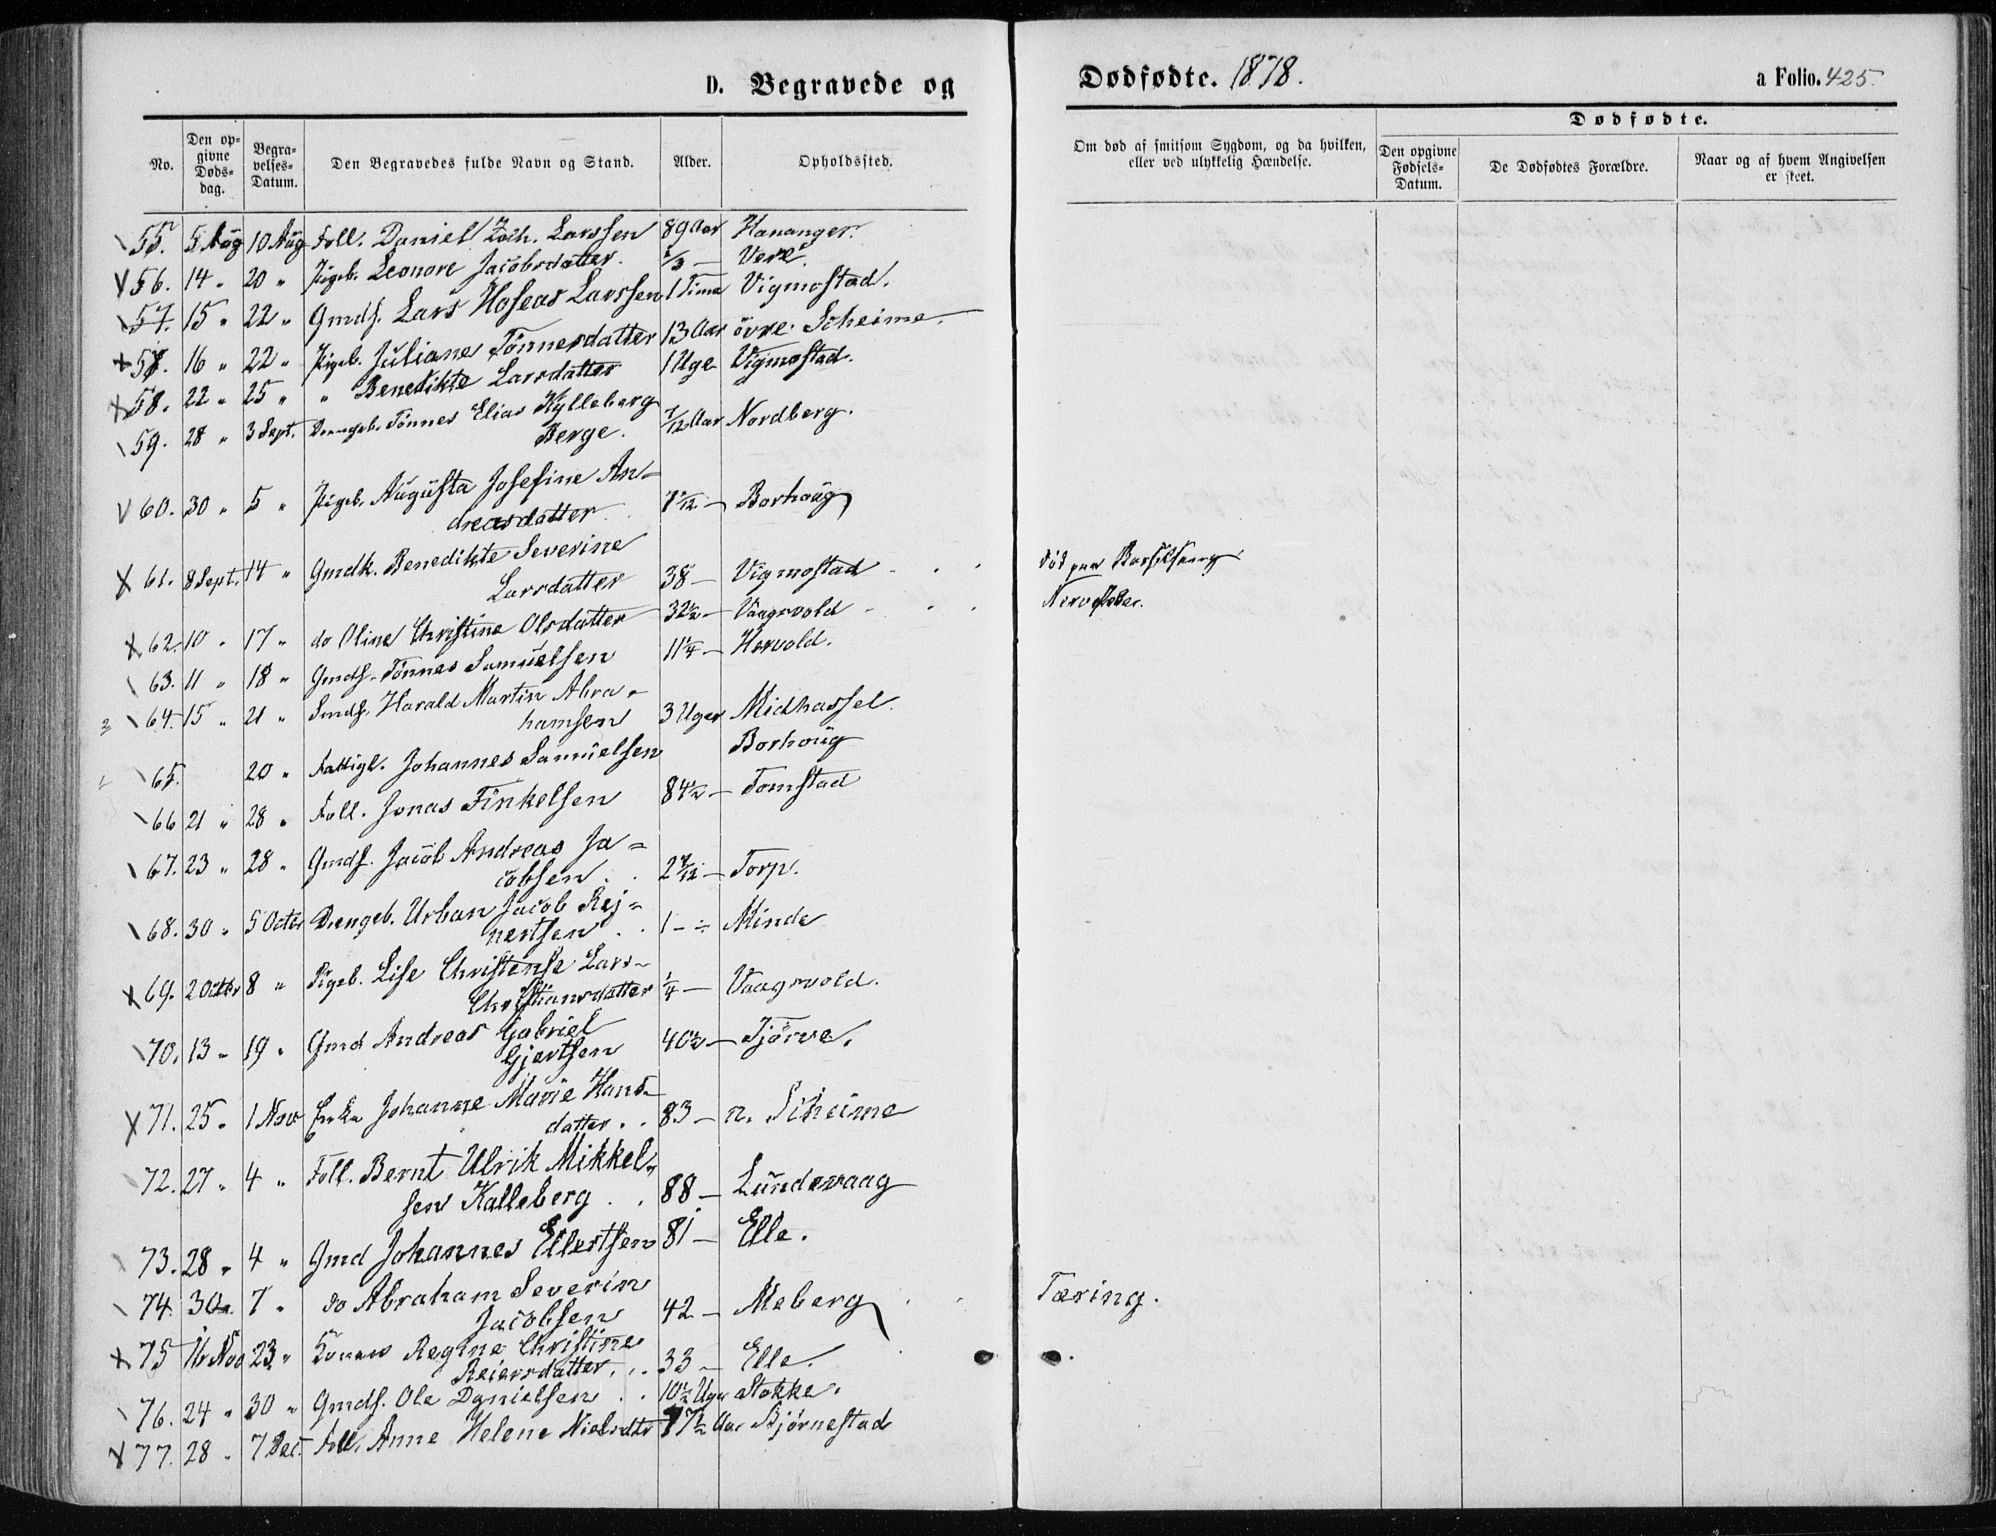 D. Begravede og
Dødfødte. 1878.
a Folio. 425.
No.
Den opgivne Dødsdag.
Begravelses-Datum.
Den Begravedes fulde Navn og Stand.
Alder.
Opholdssted.
Om død af smitsom Sygdom, og da hvilken, eller ved ulykkelig Hændelse.
Dødfødte.
Den opgivne Fødsels-Datum.
De Dødfødtes Forældre.
Naar og af hvem Angivelsen er skeet.
55. 5 Aug 10 Aug Foll. Daniel Zach. Larssen 89 Aar Hananger.
56. 14 " 20 " Pigeb. Leonore Jacobsdatter. /3 — Vere
57. 15 " 22 " Gmds. Lars Hoseas Larssen 1 Time Vigmostad.
16 " 22 " Pigeb. Juliane Tönnesdatter 13 Aar övre Scheime.
58. 22 " 25 " " Benedikte Larsdatter 1 Uge Vigmostad.
59. 28 " 3 Sept. Drengeb. Tönnes Elias Kylleberg 7/12 Aar Nordberg.
Berge.
60. 30 " 5 " Pigeb. Augusta Josefine An-
dreasdatter /12 — Borhoug
61. 8 Sept. 14 " Gmdk. Benedikte Severine
Larsdatter 38 — Vigmostad - - - död paa Barselseng
62. 10 " 17 " do Oline Christine Olsdatter 32½ — Vaagsvold - - - Nervefeber.
63. 11 " 18 " Gmds. Tönnes Samuelsen 11¼ — Hervold.
64. 15 " 21 " Smds. Harald Martin Abra-
hamsen 3 Uger Midhassel
65. 20 " Fattigl. Johannes Samuelsen Borhoug
66 21 " 28 " Foll. Jonas Tinkelsen 84½ — Tomstad
67. 23 " 28 " Gmds. Jacob Andreas Ja-
cobsen . . 2 /12 — Torp.
68. 30 " 5 Octbr Drengeb. Urban Jacob Rej-
nertsen . . 1 - ÷ Minde
69. 2 Octbr 8 " Pigeb. Lise Christense Lars-
Christiansdatter ¼ — Vaagsvold.
70. 13 " 19 " Gmd Andreas Gabriel
Gjertsen 40½ — Tjörve.
71. 25 " 1 Nov. Enke Johanne Marie Hans-
datter . . 83 — n. Scheime
72. 27 " 4 " Foll. Bernt Ulrik Mikkel-
sen Kalleberg . . 88 — Lundevaag
73. 28 " 4 " Gmd Johannes Ellertsen 81 — Elle.
74. 30 " 7 " do Abraham Severin
Jacobsen 42 — Meberg . . Tæring.
75 16 Nov 23 " Konen Regine Christine
Reiersdatter. . . 33 — Elle.
76. 24 " 30 " Gmds. Ole Danielsen . . 10½ Uger Stokke.
77. 28 " 7 Dec. Foll. Anne Helene Nielsdtr 77½ Aar Bjørnestad